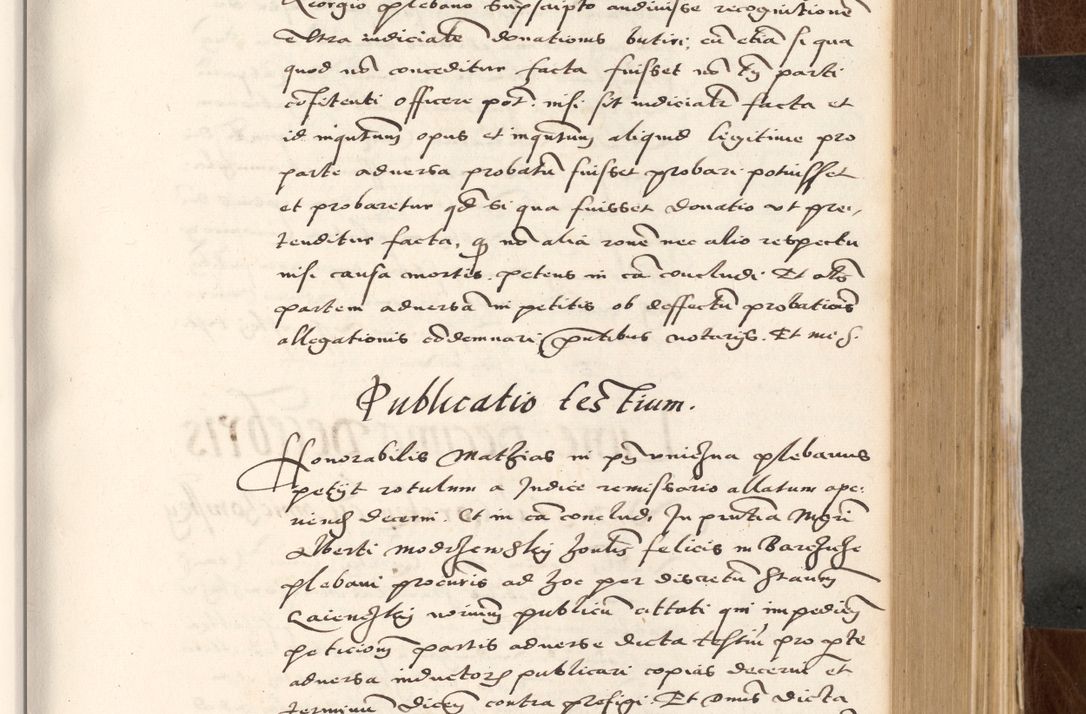 Georgio plebano supscripto audivisse recognitionē
extra iudicialē donationis butiri, cū etiā si qua
quod nō conceditur facta fuisset nō tn̄ parti
cōfitenti officere pot. nisi sit iudicialr̄ facta et
id inqutum opus et inqutum aliquid legitime pro
parte adversa probatū fuisset probari potuisset
et probaretur qđ si qua fuisset donatio ut pre-
tenditur facta, nō alia ronē nec alio respectu
nisi causa mortis. petens in cā concludi. Et alt̄
partem adversā in petitis ob deffectū probatiois
allegationis cōdemnari pn̄tibus notarijs. Et me S.
Publicatio testium.
Honorabilis Mathias in plebanus
petijt rotulum a Judice remissario allatum ape-
riend decerni. Et in cā concludi. In pn̄tia Mgrī
Alberti Modrzewskij felicis in
plebani procuris ad hoc per discretū
notariū publicū cittati qui impedien̄
peticionī partis adverse dicta testiū pro pte
adversa inductorū publicari copias decerni et
terminum dicen̄ contra prefigi. Et Dnus dicta